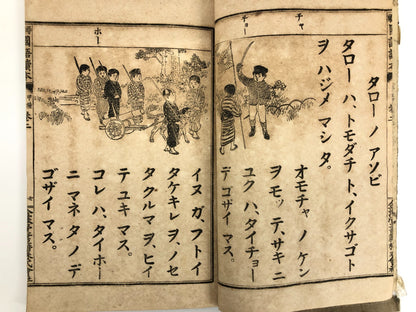 チャ
チョー
タロー ノ アソビ
タロー ハ、トモダチ ト、イクサゴト
ヲ ハジメ マシ タ。
オモチャ ノ ケン
ヲ モッ テ、サキ ニ
ユク ハ、タイチョー
デ ゴザイ マス。
ホー
イヌ ガ、フトイ
タケキレ ヲ、ノセ
タグルマ ヲ、ヒイ
テ ユキ マス。
コレ ハ、タイホー
ニ マネ タ ノ デ
ゴザイ マス。